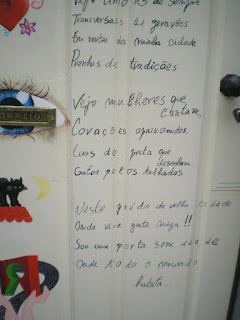 Vejo amores de sempre
Transversais às gerações
Em noites da minha cidade
Prenhas de tradições
Vejo mulheres que
cantam,
Corações apaixonados,
Luas de prata que
desenham
Gatos pelos telhados
Neste prédio da velha cidade
Onde vive gente amiga!!
Sou uma porta sem idade
Onde todo o mundo
habita...
CORREIO